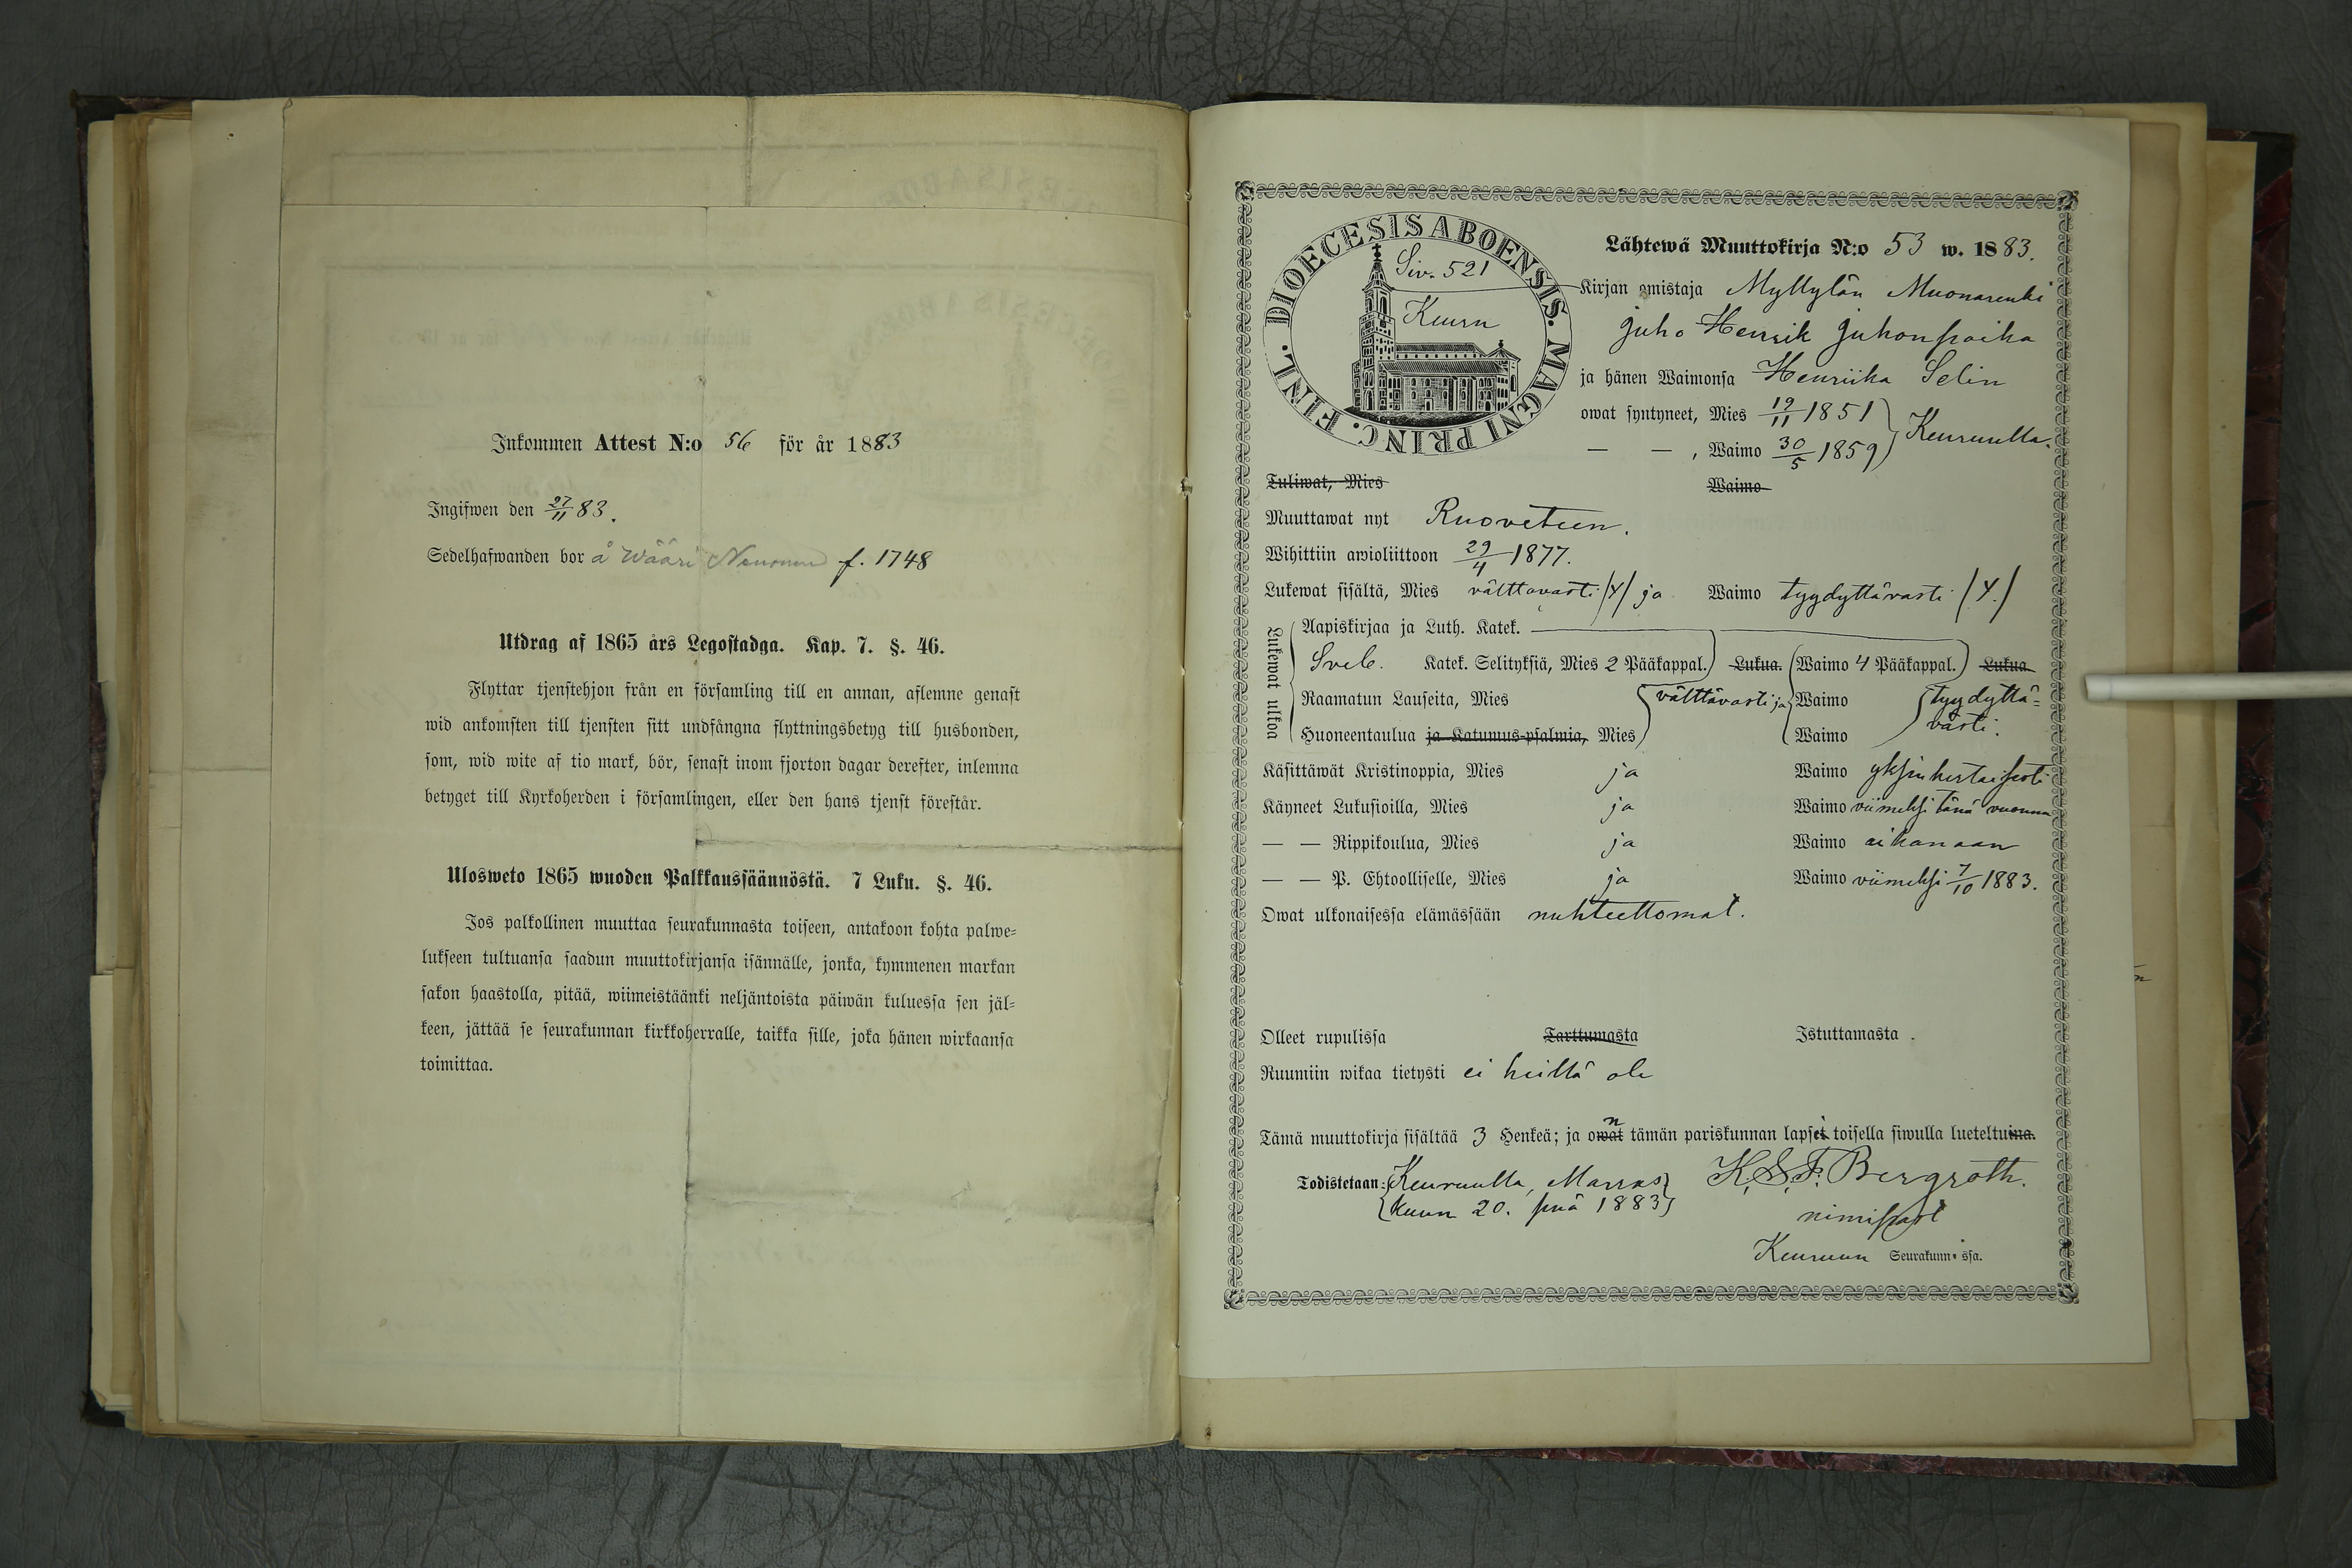 Inkommen Attest N:o 56 för år 1883
Ingifwen den 27/11 83.
Sedelhafwanden bor å Wääri f. 1748
Utdrag af 1865 års Legostadga. Kap. 7. §. 46.
Flyttar tjenstehjon från en församling till en annan, aflemne genast
wid ankomsten till tjensten sitt undfångna flyttningsbetyg till husbonden,
som, wid wite af tio mark, bör, senast inom fjorton dagar derefter, inlemna
betyget till Kyrkoherden i församlingen, eller den hans tjenst förestår.
Ulosweto 1865 wuoden Palkkaussäännöstä. 7 Luku. §. 46.
Jos palkollinen muuttaa seurakunnasta toiseen, antakoon kohta palwe=
lukseen tultuansa saadun muuttokirjansa isännälle, jonka, kymmenen markan
sakon haastolla, pitää, wiimeistäänki neljäntoista päiwän kuluessa sen jäl=
keen, jättää se seurakunnan kirkkoherralle, taikka sille, joka hänen wirkaansa
toimittaa.
DIOECESIS ABOENSIS. MAGNI PRINC. FINL.
Siv. 521
Keuru
Lähtewä Muuttokirja N:o 53 w. 1883.
Kirjan omistaja Myllylän Muonarenki
Juho Henrik Juhonpoika
ja hänen Waimonsa Henriika Selin
owat syntyneet, Mies 19/11 1851
— — , Waimo 30/5 1859 Keuruulla.
Tuliwat, Mies Waimo
Muuttawat nyt Ruoveteen.
Wihittiin awioliittoon 29/4 1877.
Lukewat sisältä, Mies välttävästi /4/ ja Waimo tyydyttävästi /4./
Lukewat ulkoa
Aapiskirjaa ja Luth. Katek.
Sveb. Katek. Selityksiä, Mies 2 Pääkappal. Lukua. Waimo 4 Pääkappal. Lukua
Raamatun Lauseita, Mies välttävästi ja Waimo tyydyttä=
Huoneentaulua ja Katumus-psalmia, Mies Waimo västi.
Käsittäwät Kristinoppia, Mies ja Waimo yksinkertaisesti
Käyneet Lukusioilla, Mies ja Waimo viimeksi tänä vuonna
— — Rippikoulua, Mies ja Waimo aikanaan
— — P. Ehtoolliselle, Mies ja Waimo viimeksi 7/10 1883.
Owat ulkonaisessa elämässään nuhteettomat.
Olleet rupulissa Tarttumasta Istuttamasta.
Ruumiin wikaa tietysti ei heillä ole
Tämä muuttokirja sisältää 3 Henkeä; ja owat n tämän pariskunnan lapset toisella siwulla lueteltuina.
Todistetaan: Keuruulla, Marras K. S. F. Bergroth.
kuun 20. pnä 1883
Keuruun Seurakunnassa.